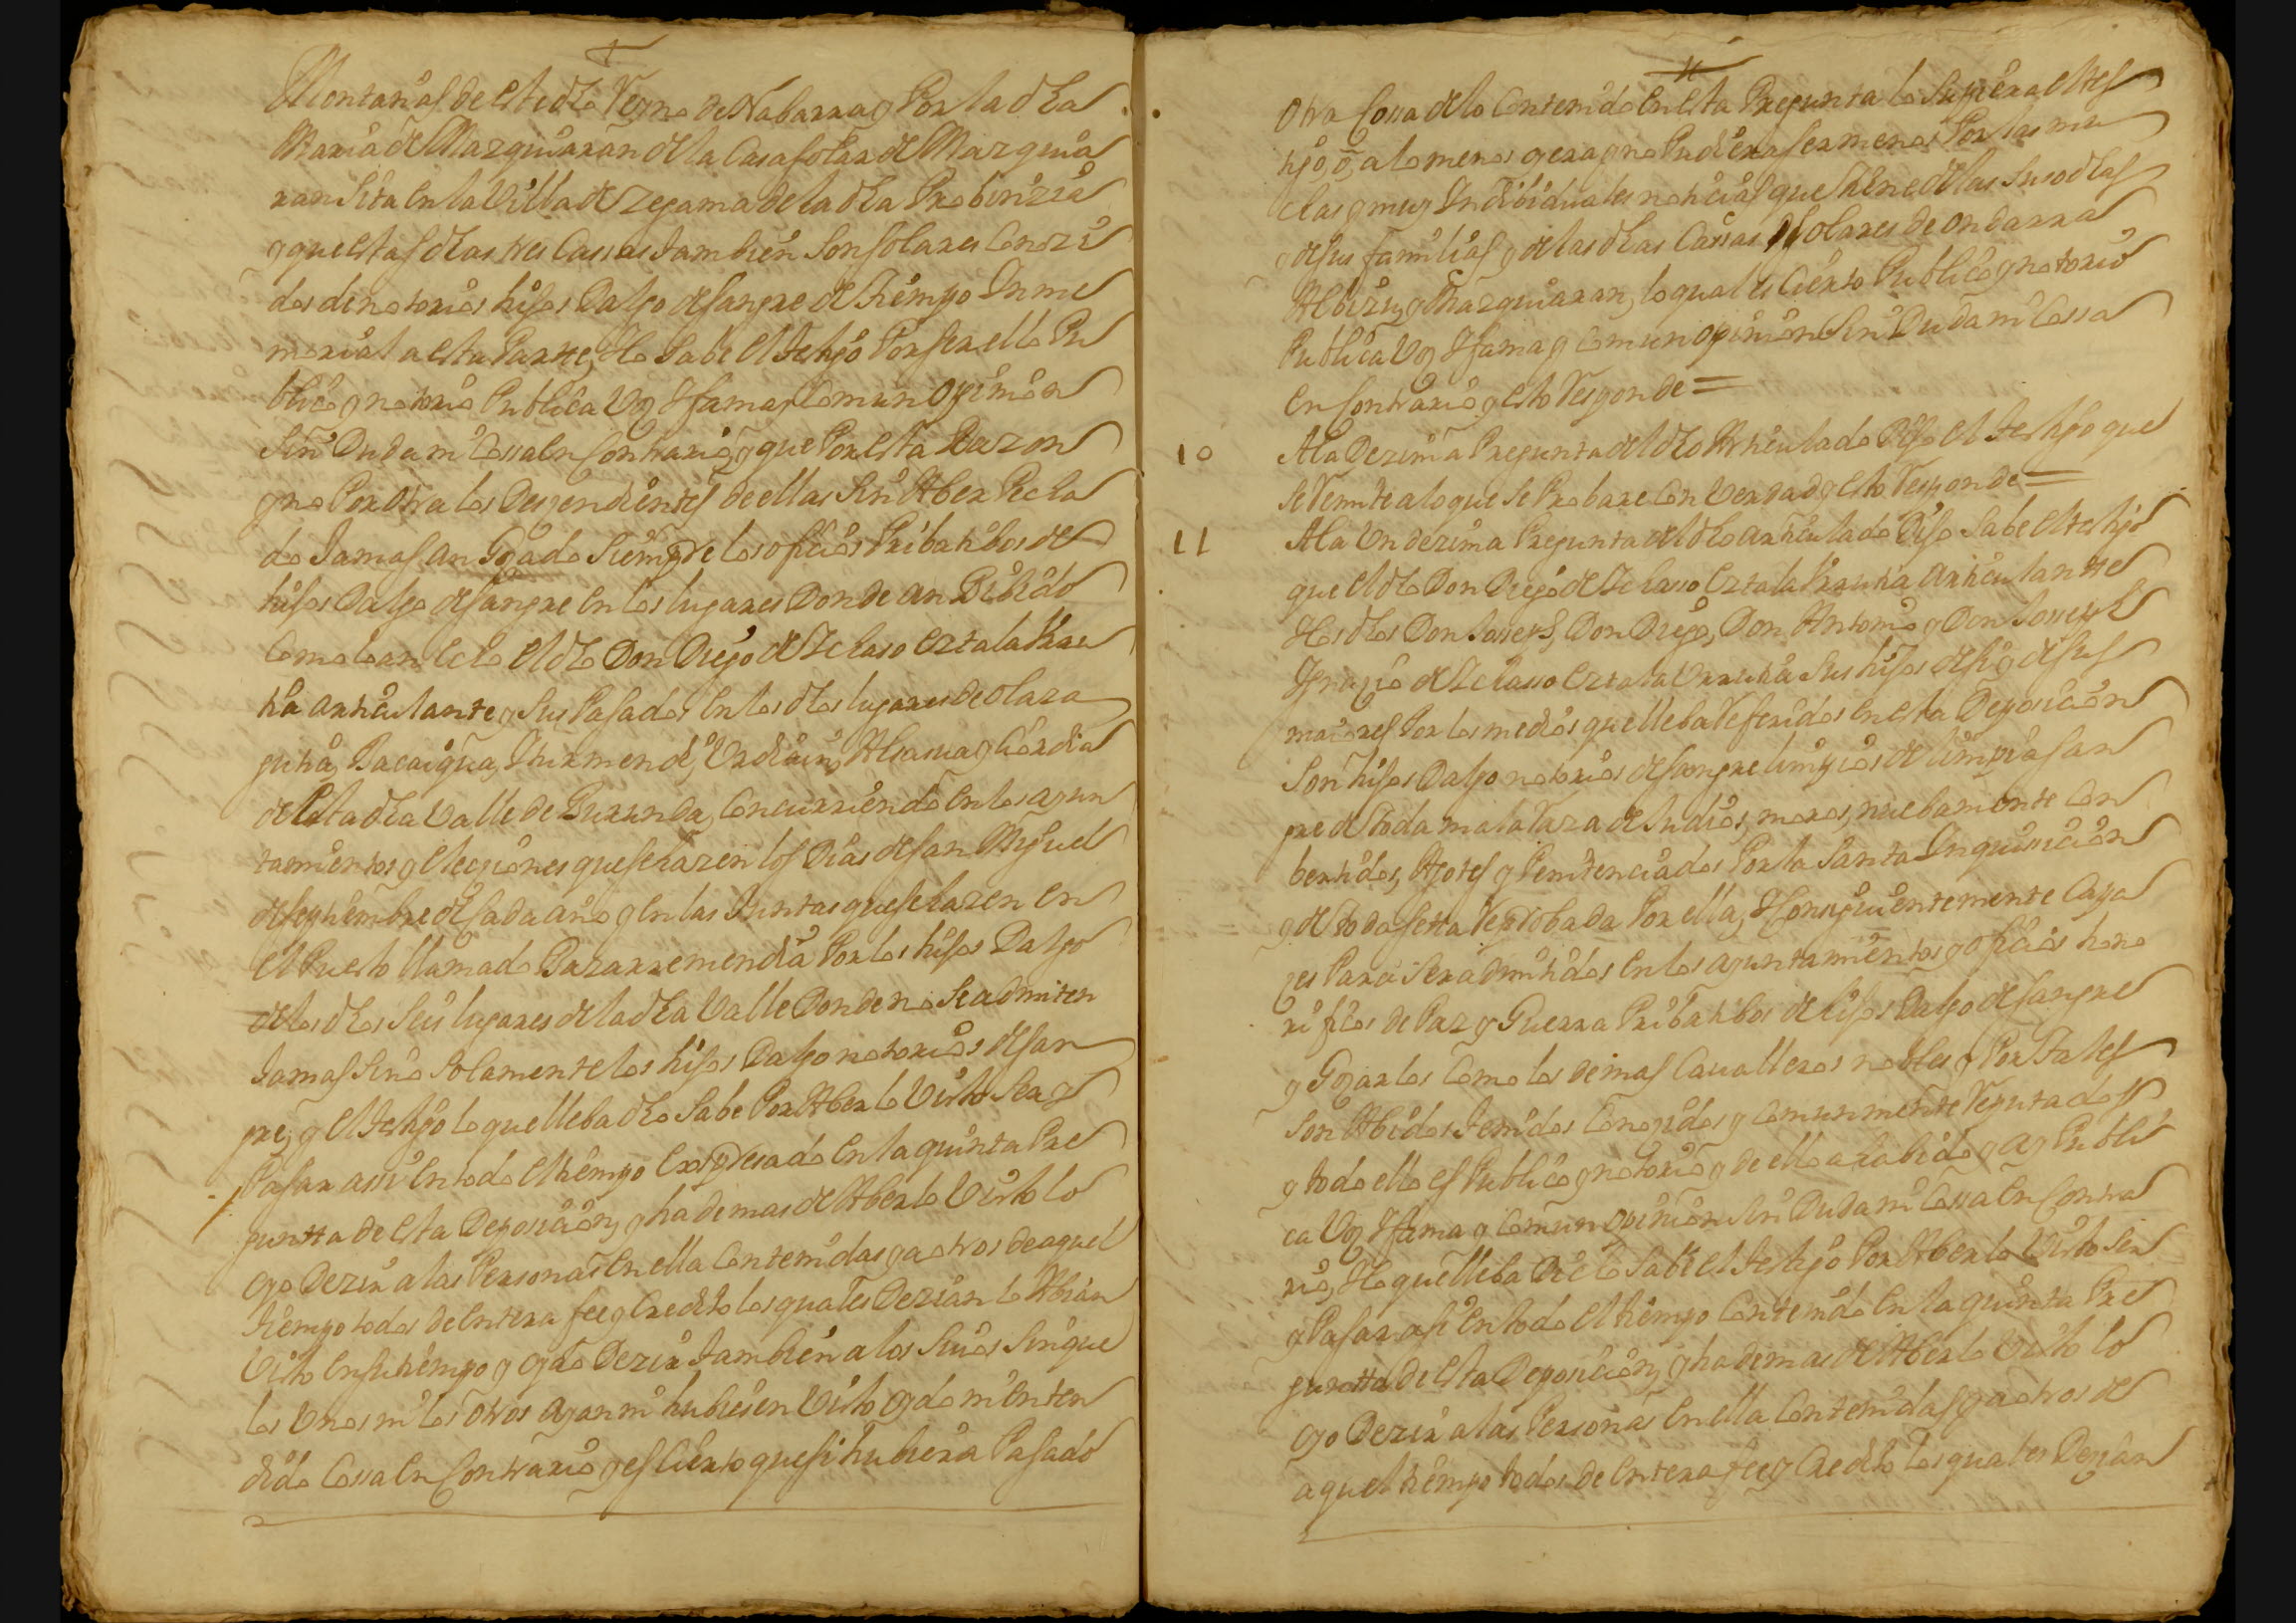 Montañas de este dho Reyno de Nabarra y Por la dha
Maria de Mazquiaran de la Casa solar de Mazquia
ran sita en la Villa de Zegama de la dha Probinzia
y que estas dhas tres Cassas tambien son solares Conozi
dos de notorios hijos Dalgo de sangre de tiempo Inme
morial a esta Parte, Ylo sabe el testigo Por ser ello Pu
blico y notorio Publica Voz Yfama y Comun opinion
sin Duda ni Cossa en Contrario, y que Por esta Razon
y no Por otra los Deszendientes de ellas sin Aber Pecha
do Jamas an Gozado siempre los oficios Pribatibos de
hijos Dalgo de sangre en los lugares Donde an Bibido
Como lo an echo el dho Don Diego de
tia articulante y sus Pasados en los dhos lugares de olaza
gutia, Bacaiqua, Yturmendi, Urdiain, Alsasua y Ciordia
de esta dha Valle de Burunda, Concurriendo en los ayun
tamientos y elecziones que se hazen los Dias de san Miguel
de septiembre de Cada año y en las Juntas que se hazen en
el Puesto llamado Bazarremendia Por los hijos Dalgo
de los dhos seis lugares de la dha Valle Donde no se admiten
Jamas sino solamente los hijos Dalgo notorios de san
gre, y el testigo lo que lleba dho sabe Por Aberlo Visto ser y
Pasar assi en todo el tiempo expresado en la quinta Pre
guntta de esta Deposicion, y ha demas de Aberlo Visto lo
oyo Dezir a las Personas en ella Contenidas y a otros de aquel
tiempo todos de entera fee y Credito los quales Dezian lo Abian
Visto en su tiempo y oydo Dezir tambien a los suios sin que
los Unos ni los otros ayan ni hubiesen Visto oydo ni enten
dido Cossa en Contrario y es Cierto que si hubiera Pasado
otra Cossa de lo Contenido en esta Pregunta lo supiera el tes
tigo, o, a lo menos y era y no Pudiera ser menos Por las mu
chas y muy Indibiduales noticias que tiene de las susodhas
y de sus familias y de las dhas Cassas solares de ondarra
Albizu, y Mazquiaran, lo qual es Cierto Publico y notorio
Publica Voz Yfama y Comun opinion sin Duda ni Cossa
en Contrario y esto Responde =
10 A la Dezima Pregunta del dho Articulado Dijo el testigo que
se Remite a lo que se Probare Con Verdad y esto Responde =
11 A la Undezima Pregunta del dho articulado Dijo sabe el testigo
que el dho Don Diego de articulante
Ylos dhos Don Josseph, Don Diego, Don Antonio y Don Josseph
Ygnazio de sus hijos de si y de sus
maiores Por los medios que lleba Referidos en esta Deposicion
son hijos Dalgo notorios de sangre limpios de limpia san
gre de toda mala Raza de Judios, moros, nuebamente Con
bertidos, Agotes y Penitenciados Por la santa Inquisicion
y de toda setta Reprobada Por ella, Y Consiguientemente Capa
zes Para ser admitidos en los ayuntamientos y oficios hono
rificos de Paz y Guerra Pribatibos de hijos Dalgo de sangre
y Gozarlos Como los demas Cavalleros nobles y Por tales
son Abidos tenidos Conozidos y Comunmente Reputados
y todo ello es Publico y notorio y de ello a habido y ay Publi
ca Voz Yfama y Comun opinion sin Duda ni Cossa en Contra
rio, Ylo que lleba Dicho sabe el testigo Por Aberlo Visto ser
y Pasar asi en todo el tiempo Contenido en la quinta Pre
guntta de esta Deposicion, y ha demas de Aberlo Visto lo
oyo Dezir a las Personas en ella Contenidas y a otros de
aquel tiempo todos de entera fee y Credito los quales Dezian